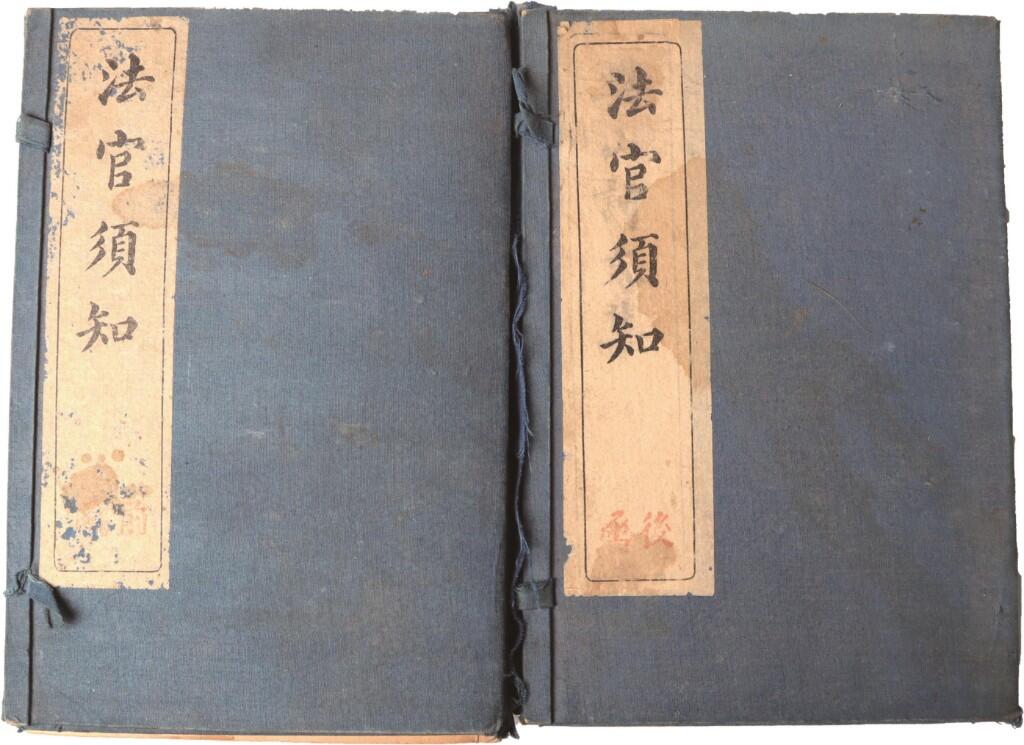 法官須知
前
法官須知
後函